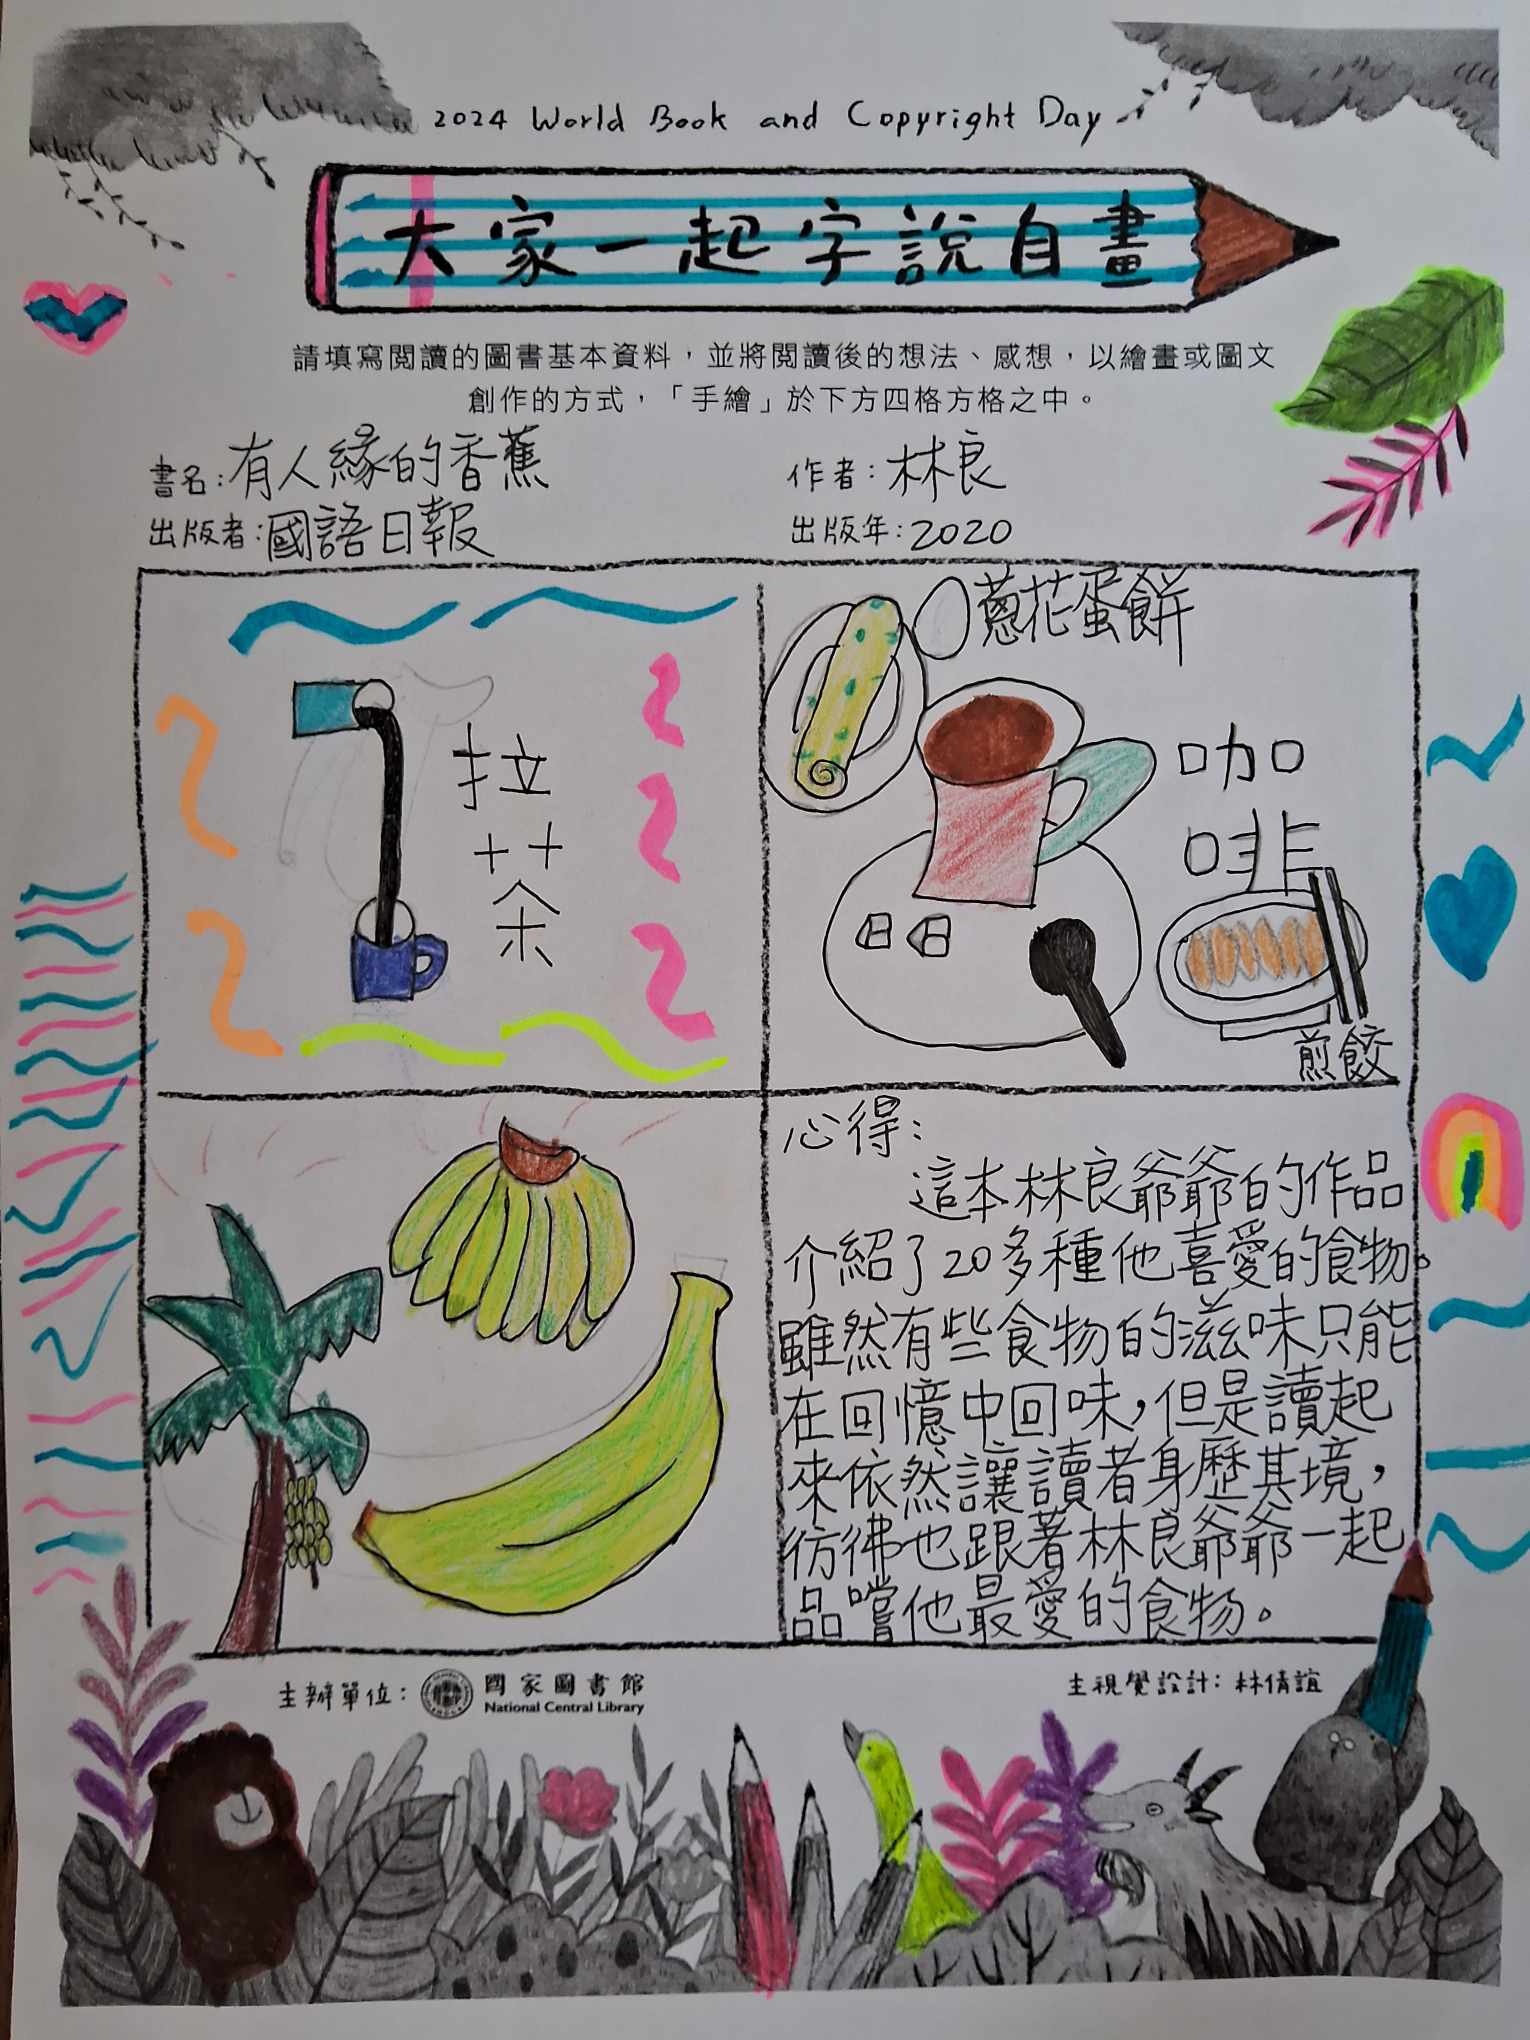 2024 World Book and Copyright Day
大家一起字說自畫
請填寫閱讀的圖書基本資料，並將閱讀後的想法、感想，以繪畫或圖文
創作的方式，「手繪」於下方四格方格之中。
書名：有人緣的香蕉
作者：林良
出版者：國語日報
出版年：2020
拉
茶
蔥花蛋餅
咖
啡
煎餃
心得：
這本林良爺爺的作品
介紹了20多種他喜愛的食物。
雖然有些食物的滋味只能
在回憶中回味，但是讀起
來依然讓讀者身歷其境，
彷彿也跟著林良爺爺一起
品嚐他最愛的食物。
主辦單位：
國家圖書館
National Central Library
主視覺設計：林倩誼